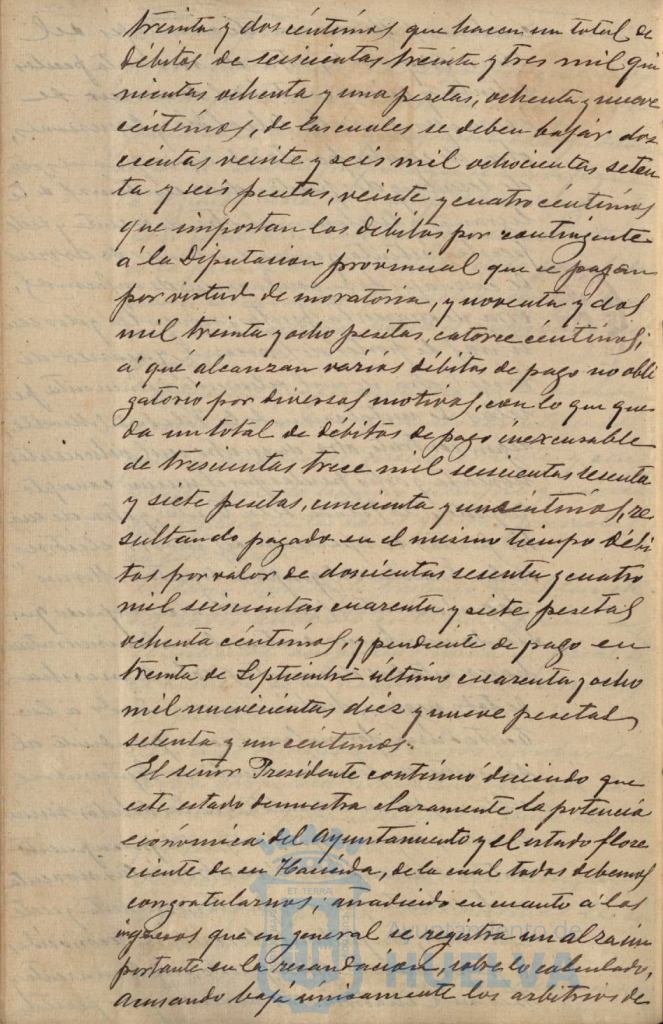 treinta y dos céntimos que hacen un total de
débitos de seiscientas treinta y tres mil qui
nientas ochenta y una pesetas, ochenta y nueve
céntimos, de las cuales se deben bajar dos
cientas veinte y seis mil ochocientas seten
ta y seis pesetas, veinte y cuatro céntimos
que importan los débitos por contingente
á la Diputacion provincial que se pagan
por virtud de moratoria, y noventa y dos
mil treinta y ocho pesetas, catorce céntimos,
á qué alcanzan varios débitos de pago no obli
gatório por diversos motivos, con lo que que
da un total de débitos de pago inexcusable
de trescientas trece mil seiscientas sesenta
y siete pesetas, cincuenta y un céntimos, re
sultando pagado en el mismo tiempo débi
tos por valor de doscientas sesenta y cuatro
mil seiscientas cuarenta y siete pesetas
ochenta céntimos, y pendiente de pago en
treinta de Septiembre último cuarenta y ocho
mil nuevecientas diez y nueve pesetas
setenta y un céntimos.
El señor Presidente continuó diciendo que
este estado demuestra claramente la potencia
económica del Ayuntamiento y el estado flore
ciente de su Hacienda, de la cual todos debemos
congratularnos; añadiendo en cuanto á los
ingresos que en general se registra un alza im
portante en la recaudacion, sobre lo calculado,
acusando baja únicamente los arbitrios de
ET TERRA
Ayuntamiento de
HUELVA